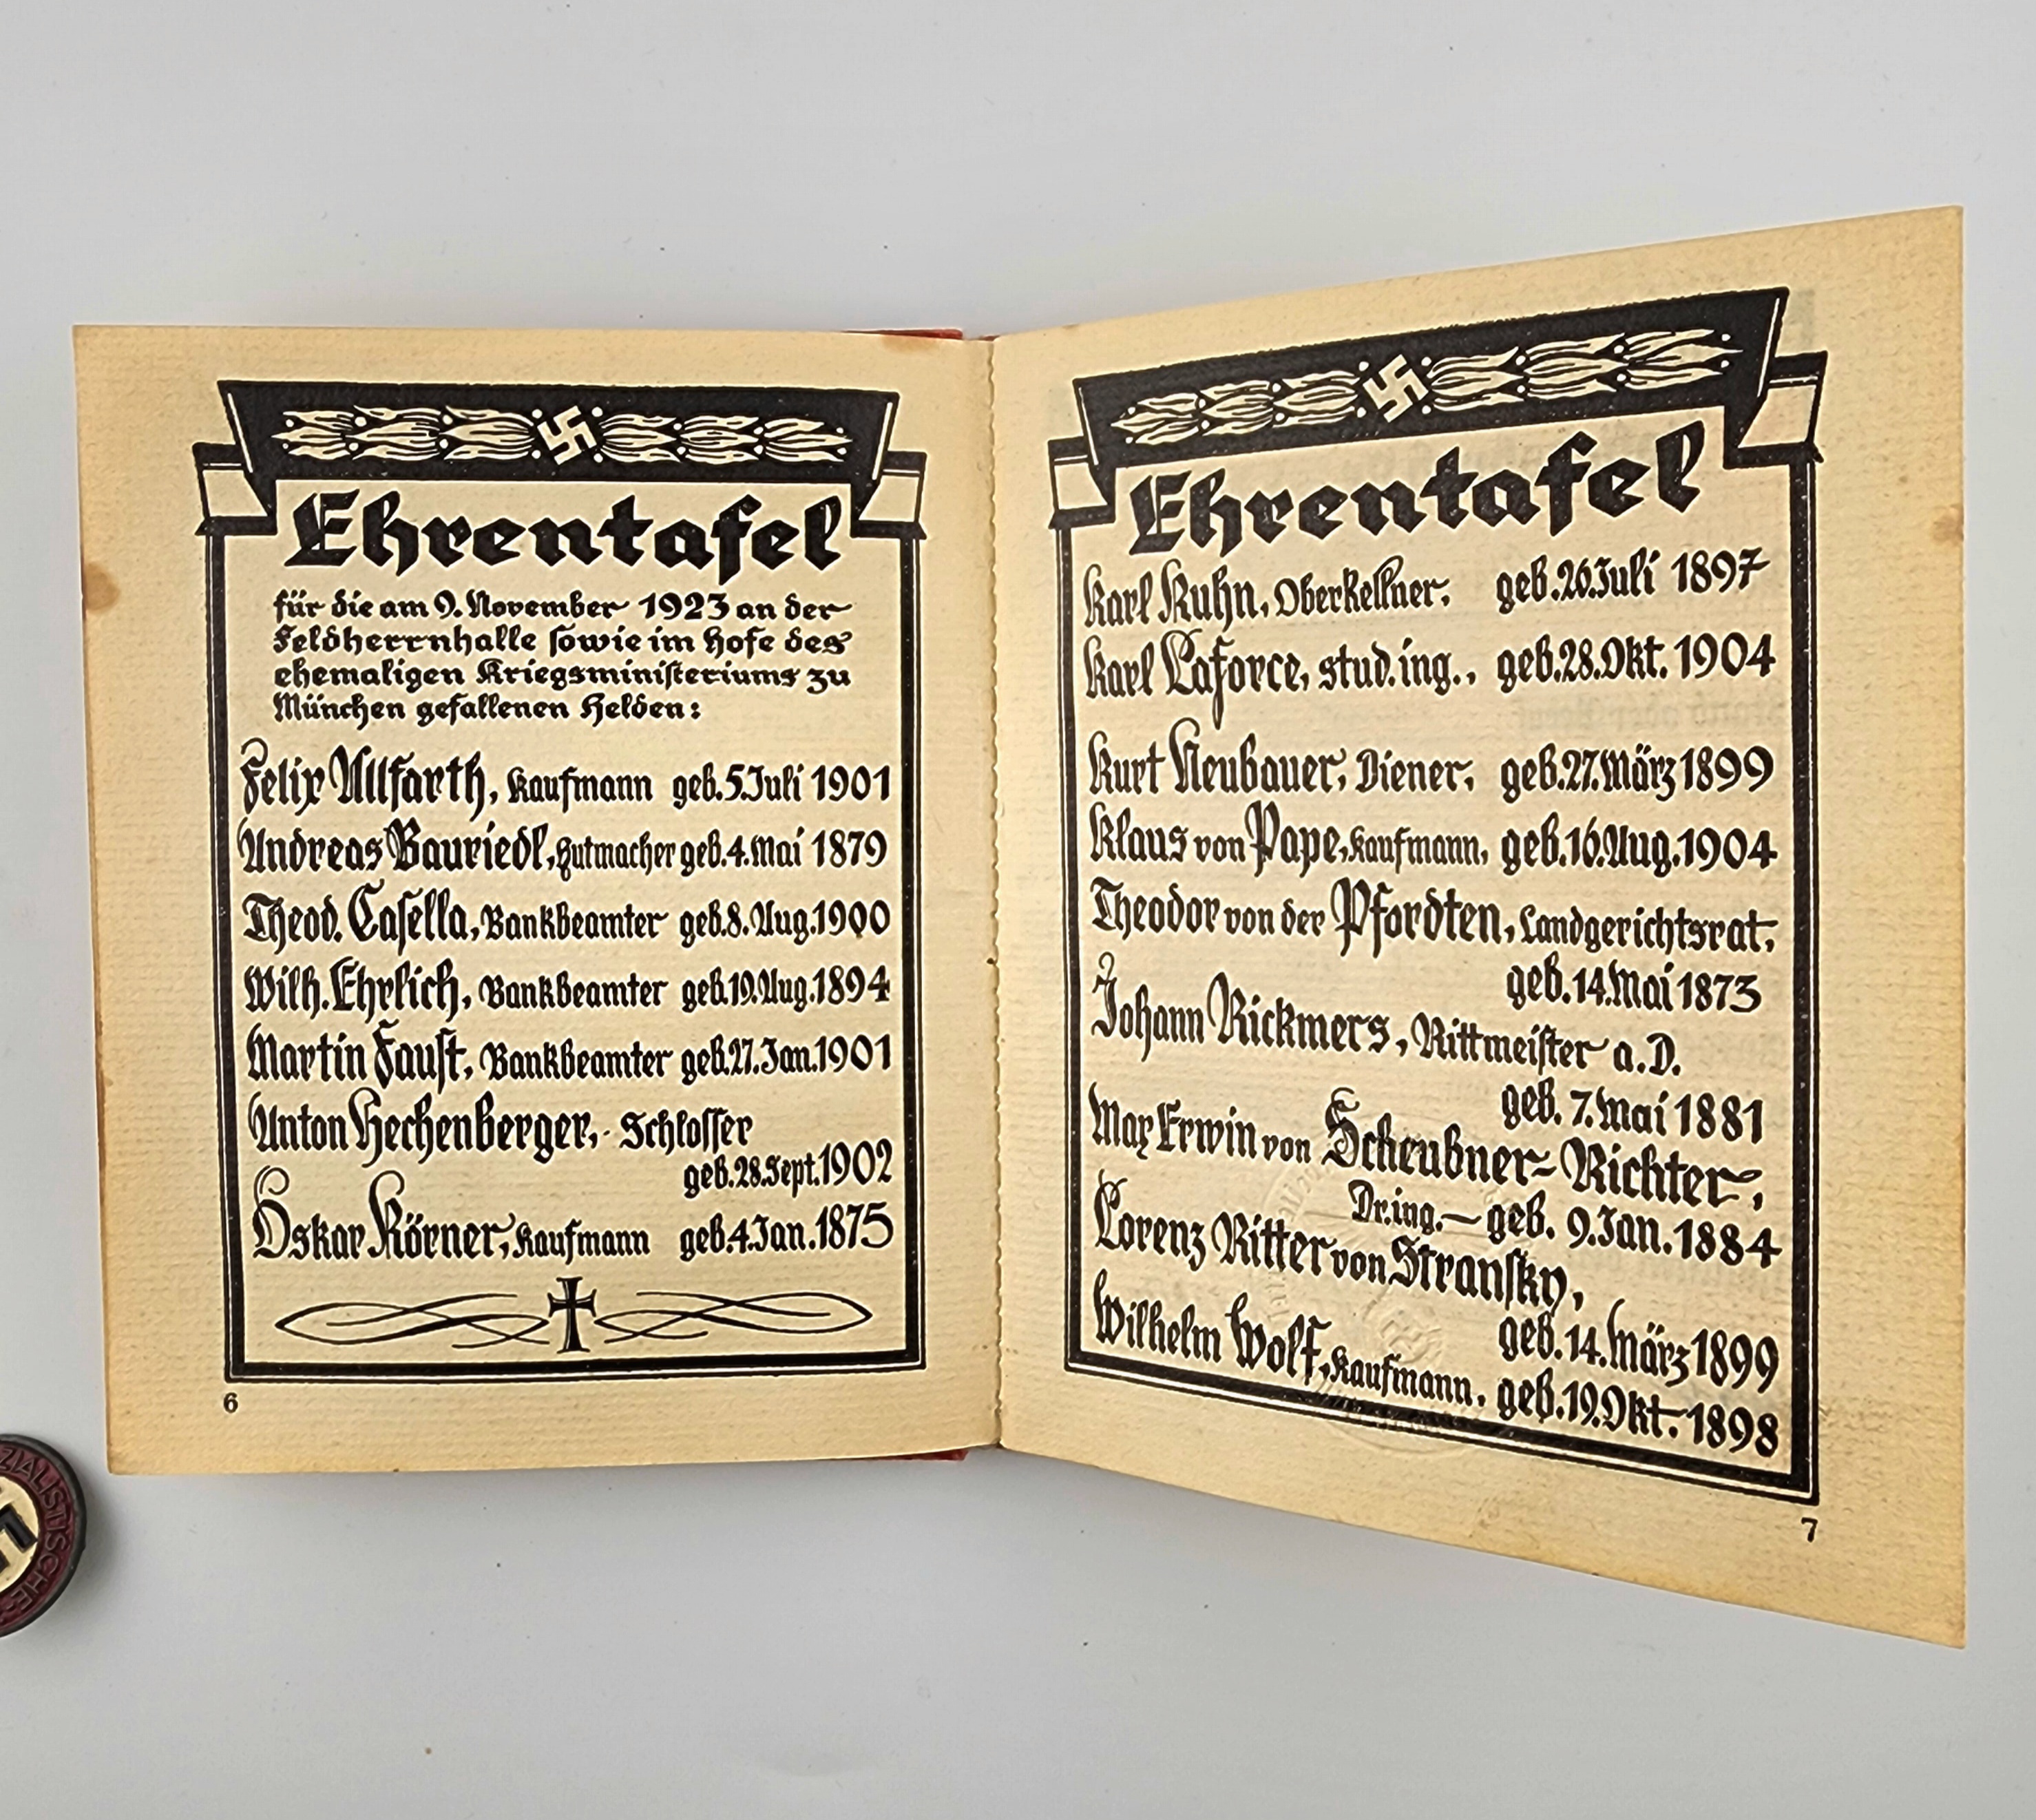 Ehrentafel
für die am 9. November 1923 an der
Feldherrnhalle sowie im Hofe des
ehemaligen Kriegsministeriums zu
München gefallenen Helden:
Felix Allfarth, Kaufmann geb. 5. Juli 1901
Andreas Bauriedl, Hutmacher geb. 4. Mai 1879
Theod. Casella, Bankbeamter geb. 8. Aug. 1900
Wilh. Ehrlich, Bankbeamter geb. 19. Aug. 1894
Martin Faust, Bankbeamter geb. 27. Jan. 1901
Anton Hechenberger, Schlosser
geb. 28. Sept. 1902
Oskar Körner, Kaufmann geb. 4. Jan. 1875
6
Ehrentafel
Karl Kuhn, Oberkellner, geb. 26. Juli 1897
Karl Laforce, stud. ing., geb. 28. Okt. 1904
Kurt Neubauer, Diener, geb. 27. März 1899
Klaus von Pape, Kaufmann, geb. 16. Aug. 1904
Theodor von der Pfordten, Landgerichtsrat,
geb. 14. Mai 1873
Johann Rickmers, Rittmeister a. D.
geb. 7. Mai 1881
Max Erwin von Scheubner-Richter,
Dr. ing. — geb. 9. Jan. 1884
Lorenz Ritter von Stransky,
geb. 14. März 1899
Wilhelm Wolf, Kaufmann, geb. 19. Okt. 1898
7
ZIALISTISCHE